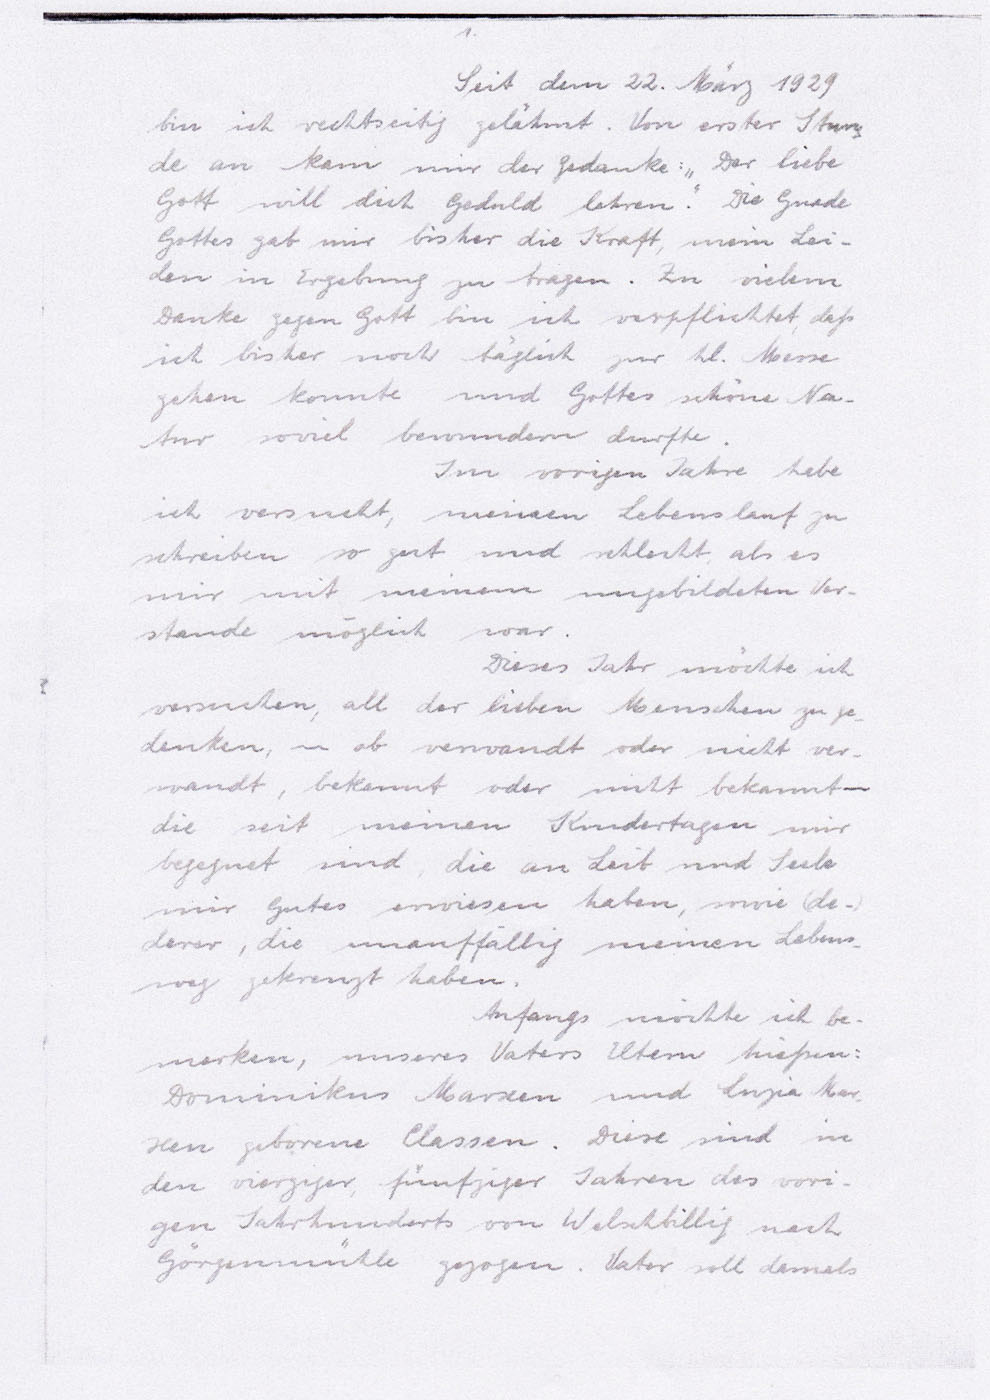 1.
Seit dem 22. März 1929
bin ich rechtseitig gelähmt. Von erster Stun-
de an kam mir der Gedanke: „Der liebe
Gott will dich Geduld lehren." Die Gnade
Gottes gab mir bisher die Kraft, mein Lei-
den in Ergebung zu tragen. Zu vielem
Danke gegen Gott bin ich verpflichtet, daß
ich bisher noch täglich zur hl. Messe
gehen konnte und Gottes schöne Na-
tur soviel bewundern durfte.
Im vorigen Jahre habe
ich versucht, meinen Lebenslauf zu
schreiben so gut und schlecht, als es
mir mit meinem ungebildeten Ver-
stande möglich war.
Dieses Jahr möchte ich
versuchen, all der lieben Menschen zu ge-
denken, – ob verwandt oder nicht ver-
wandt, bekannt oder nicht bekannt –
die seit meinen Kindertagen mir
begegnet sind, die an Leib und Seele
mir Gutes erwiesen haben, sowie (de-)
derer, die unauffällig meinen Lebens-
weg gekreuzt haben.
Anfangs möchte ich be-
merken, unseres Vaters Eltern hießen:
Dominikus Marxen und Luzia Mar-
xen geborene Classen. Diese sind in
den vierziger, fünfziger Jahren des vori-
gen Jahrhunderts von Welschbillig nach
Görgenmühle gezogen. Vater soll damals